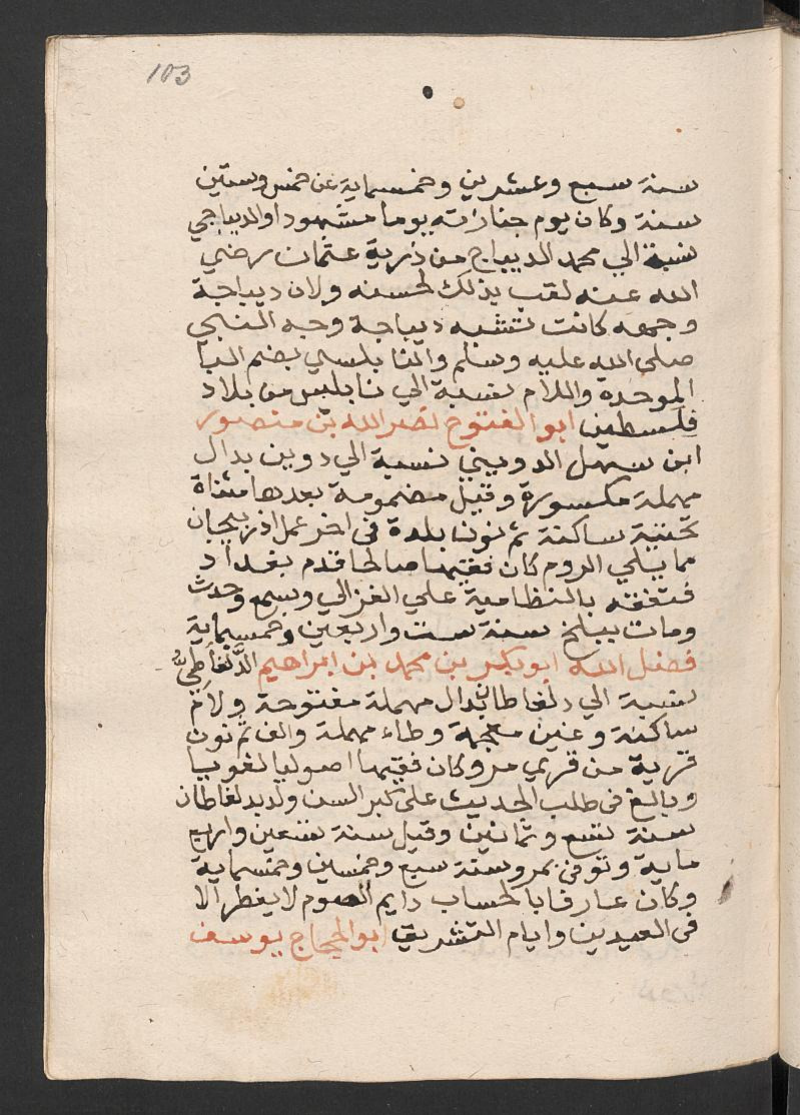 103
سنة سبع وعشرين وخمسماية عن خمس وستين
سنة وكان يوم جنازته يوما مشهودا والديباجي
نسبة الي محمد الديباج من ذرية عثمان رضي
الله عنه لقب بذلك لحسنه ولان ديباجة
وجهه كانت تشبه ديباجة وجه النبي
صلي الله عليه وسلم والنابلسي بضم البا
الموحده واللام نسبة الي نابلس من بلاد
فلسطين ابو الفتوح نصر الله بن منصور
ابن سهل الدويني نسبة الي دوين بدال
مهملة مكسورة وقيل مضمومة بعدها مثناة
تحتية ساكنة ثم نون بلدة في اخر عمل اذربيجان
مما يلي الروم كان فقيها صالحا قدم بغداد
فتفقه بالنظامية علي الغزالي وسمع وحدث
ومات ببلخ سنة ست واربعين وخمسماية
فضل الله ابو بكر بن محمد بن ابراهيم الدلغاطي
نسبة الي دلغاطان بدال مهملة مفتوحة ولام
ساكنة وغين معجمة وطاء مهملة والف ثم نون
قرية من قري مرو كان فقيها اصوليا لغويا
وبالغ في طلب الحديث علي كبر السن ولد بدلغاطان
سنة تسع وثمانين وقيل سنة تسعين واربع
ماية وتوفي بمرو سنة سبع وخمسين وخمسماية
وكان عارفا بالحساب دايم الصوم لا يفطر الا
في العيدين وايام التشريق ابو الحجاج يوسف